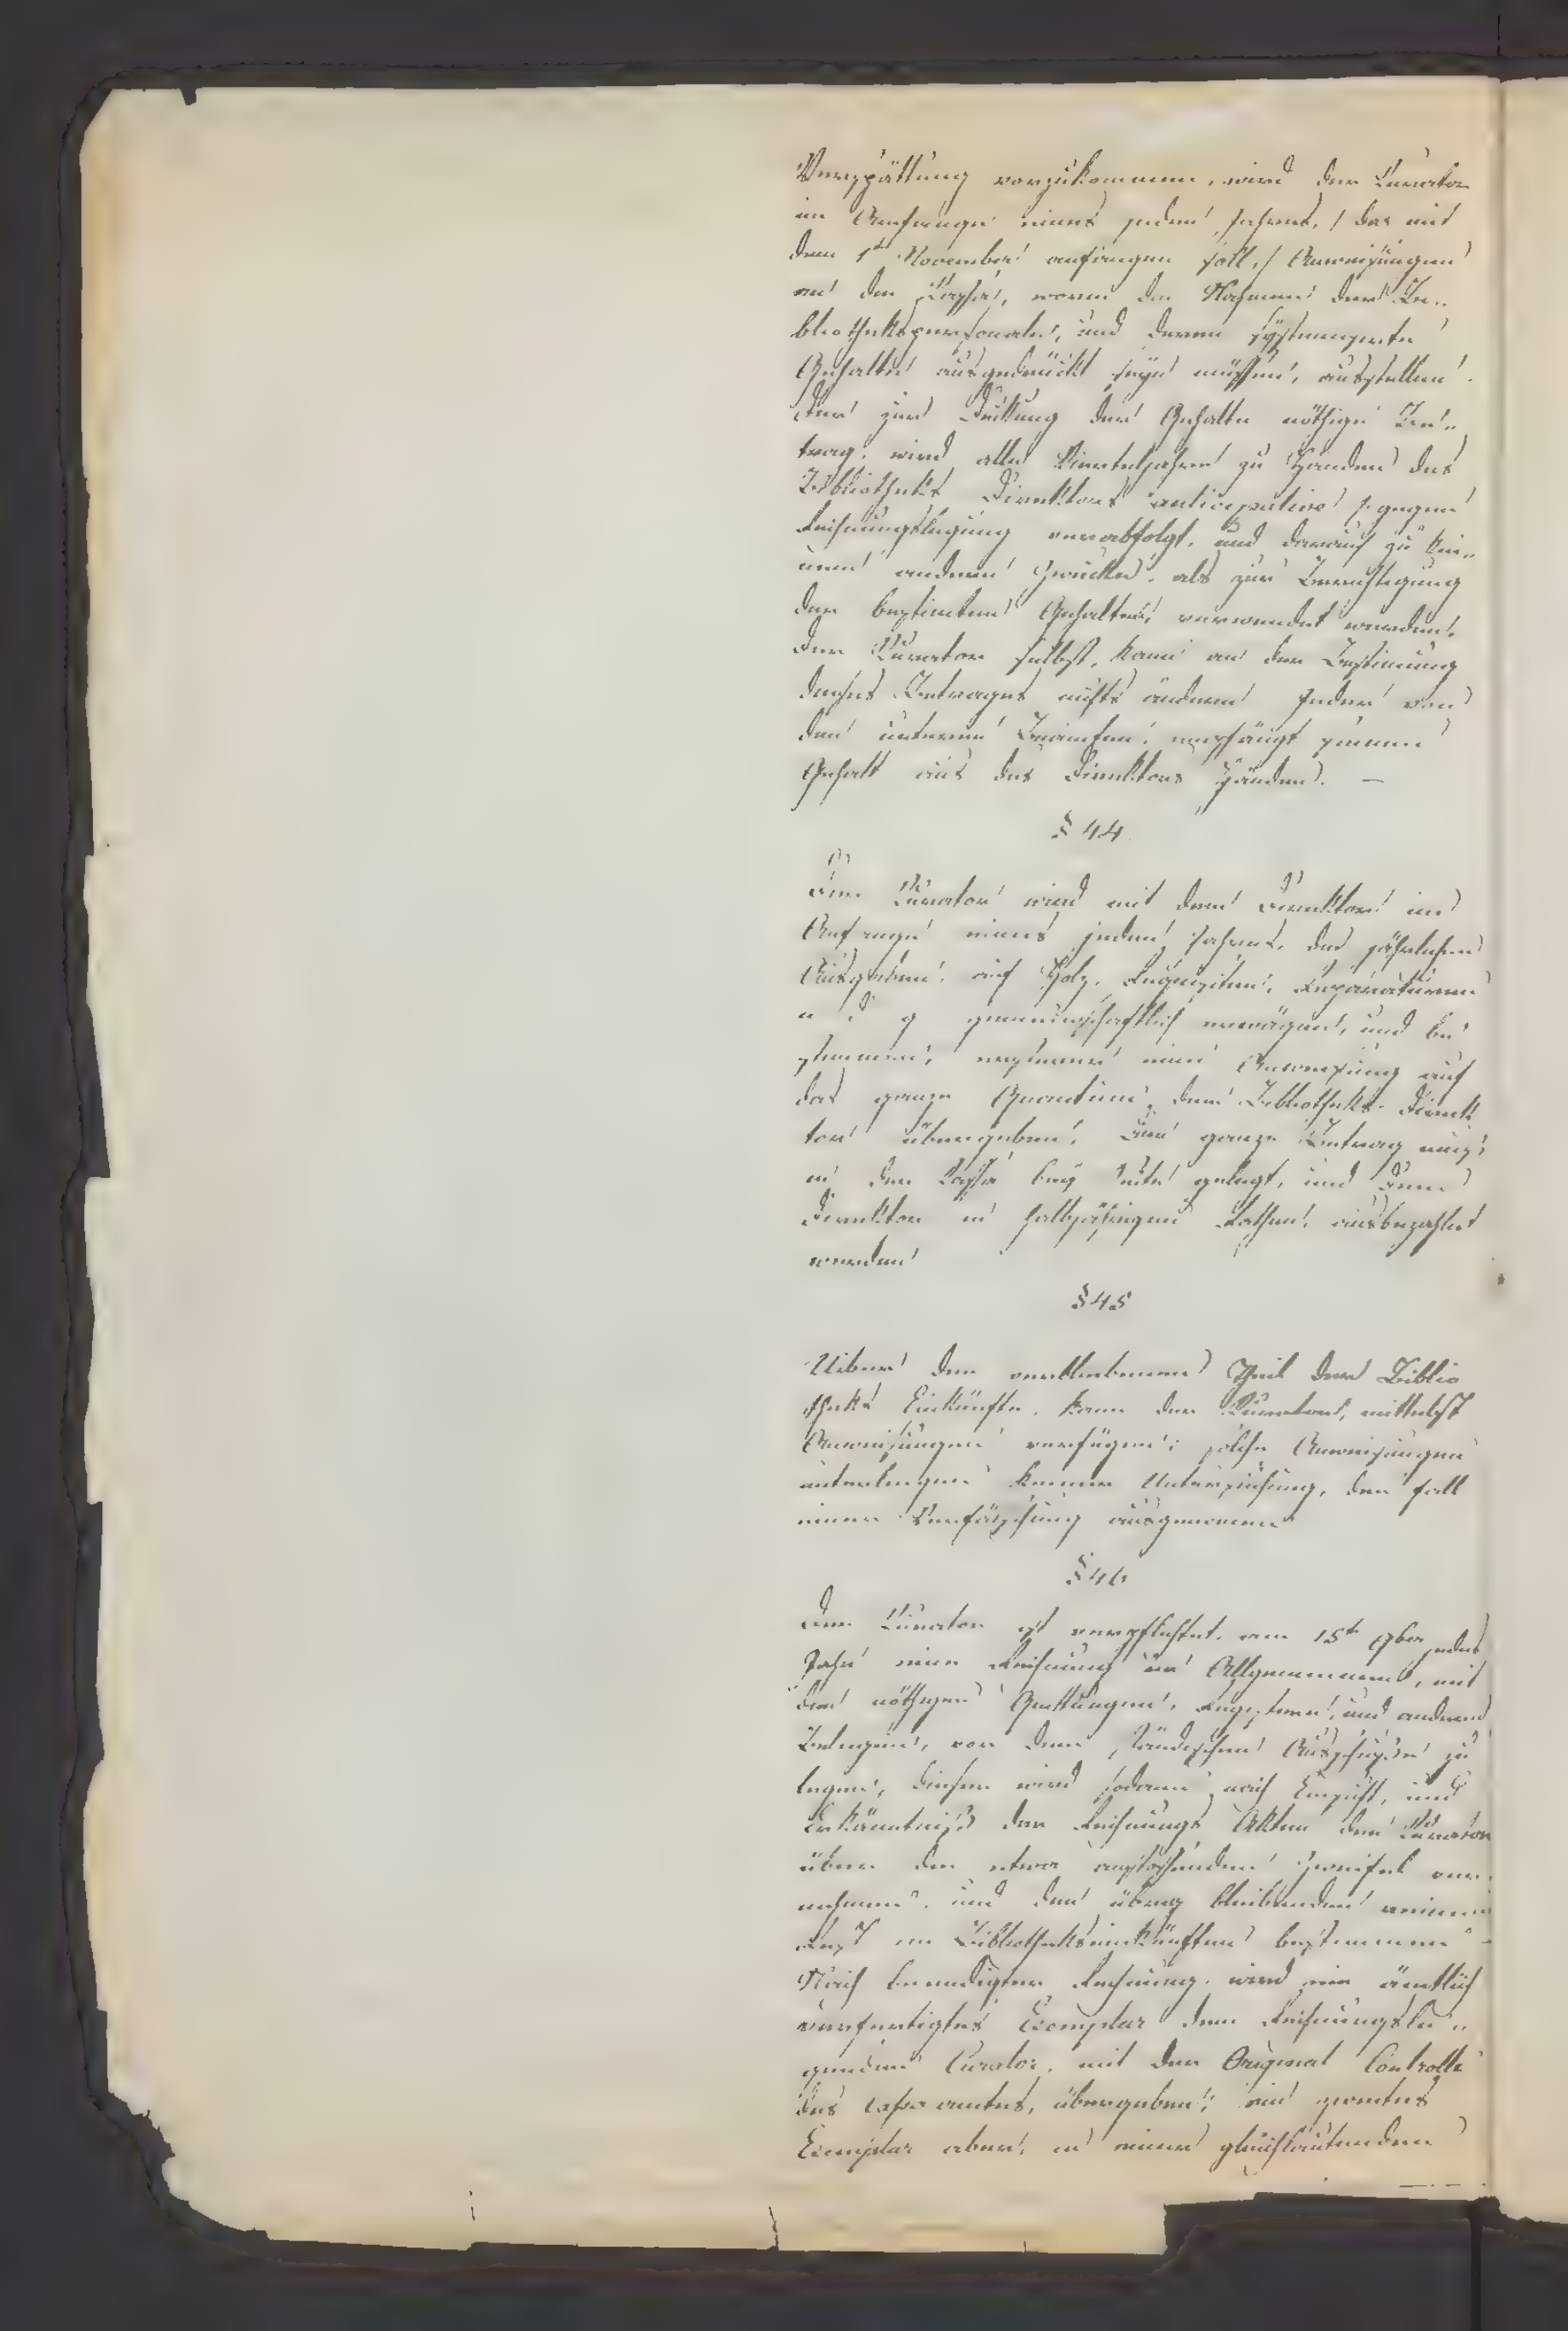 Verspättung vorzukommen, wird der Kurator
im Anfange eines jeden Jahres, / das mit
dem 1t November anfangen soll, / Anweisungen
an die Kassa, worin die Nahmen der Bi„
bliothekspersonale, und deren systemisirte
Gehalte ausgedrückt seyn müssen, ausstellen.
Der zur Deckung der Gehalte nöthige Be„
trag, wird alle Vierteljahre zu Handen des
Bibliotheks Direktors anticipative gegen
Rechnungslegung verabfolgt, und darauf zu kei„
nem anderen Zwecke, als zur Berichtigung
der bestimten Gehalte, verwendet werden.
Der Kurator selbst, kann an der Bestimung
dieses Betrages nichts ändern Jeder von
den unteren Beamten, empfängt seinen
Gehalt aus des Direktors Händen. —
§ 44.
Der Kurator wird mit dem Direktor im
Anfange eines jeden Jahres, die jährlichen
Ausgaben, auf Holz, Requisiten, Reparaturen
u d g gemeinschaftlich erwägen, und be
stimmen, ersterer eine Anweisung auf
das ganze Quantum, dem Bibliotheks-Direk
tor übergeben. Der ganze Betrag muß
in der Kassa bey Seite gelegt, und dem
Direktor in halbjährigen Rathen, ausbezahlet
werden
§ 45
Uiber den verbliebenen Theil der Biblio
theks Einkünfte, kann der Kurator, mittelst
Anweisungen verfügen; solche Anweisungen
unterliegen keiner Untersuchung, den Fall
einer Verfälschung ausgenommen
§ 46
Der Kurator ist verpflichtet, am 15t 9ber jedes
Jahr eine Rechnung im Allgemeinen, mit
den nöthigen Quittungen, Registern, und anderen
Belegen, vor dem ständischen Ausschusse zu
legen, dieser wird sodann nach Einsicht, und
Erkänntniß der Rechnungs Akten den Kurator
über die etwa aufstossenden Zweifel ver„
nehmen, und den übrig bleibenden reinen
Rest an Bibliothekseinkünften bestimmen –
Nach beendigter Rechnung, wird ein ämtlich
verfertigtes Exemplar dem Rechnungsle„
genden Curator, mit der Original Controlle
des Cassa amtes, übergeben; ein zweites
Exemplar aber, in einer gleichlautenden